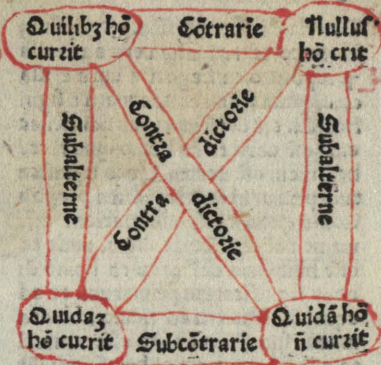 Quilibꝫ hō
currit
Cōtrarie
Nullus
hō crit
Subalterne
Contra
dictorie
Contra
dictorie
Subalterne
Quidaꝫ
hō currit
Subcōtrarie
Quidā hō
n̄ currit